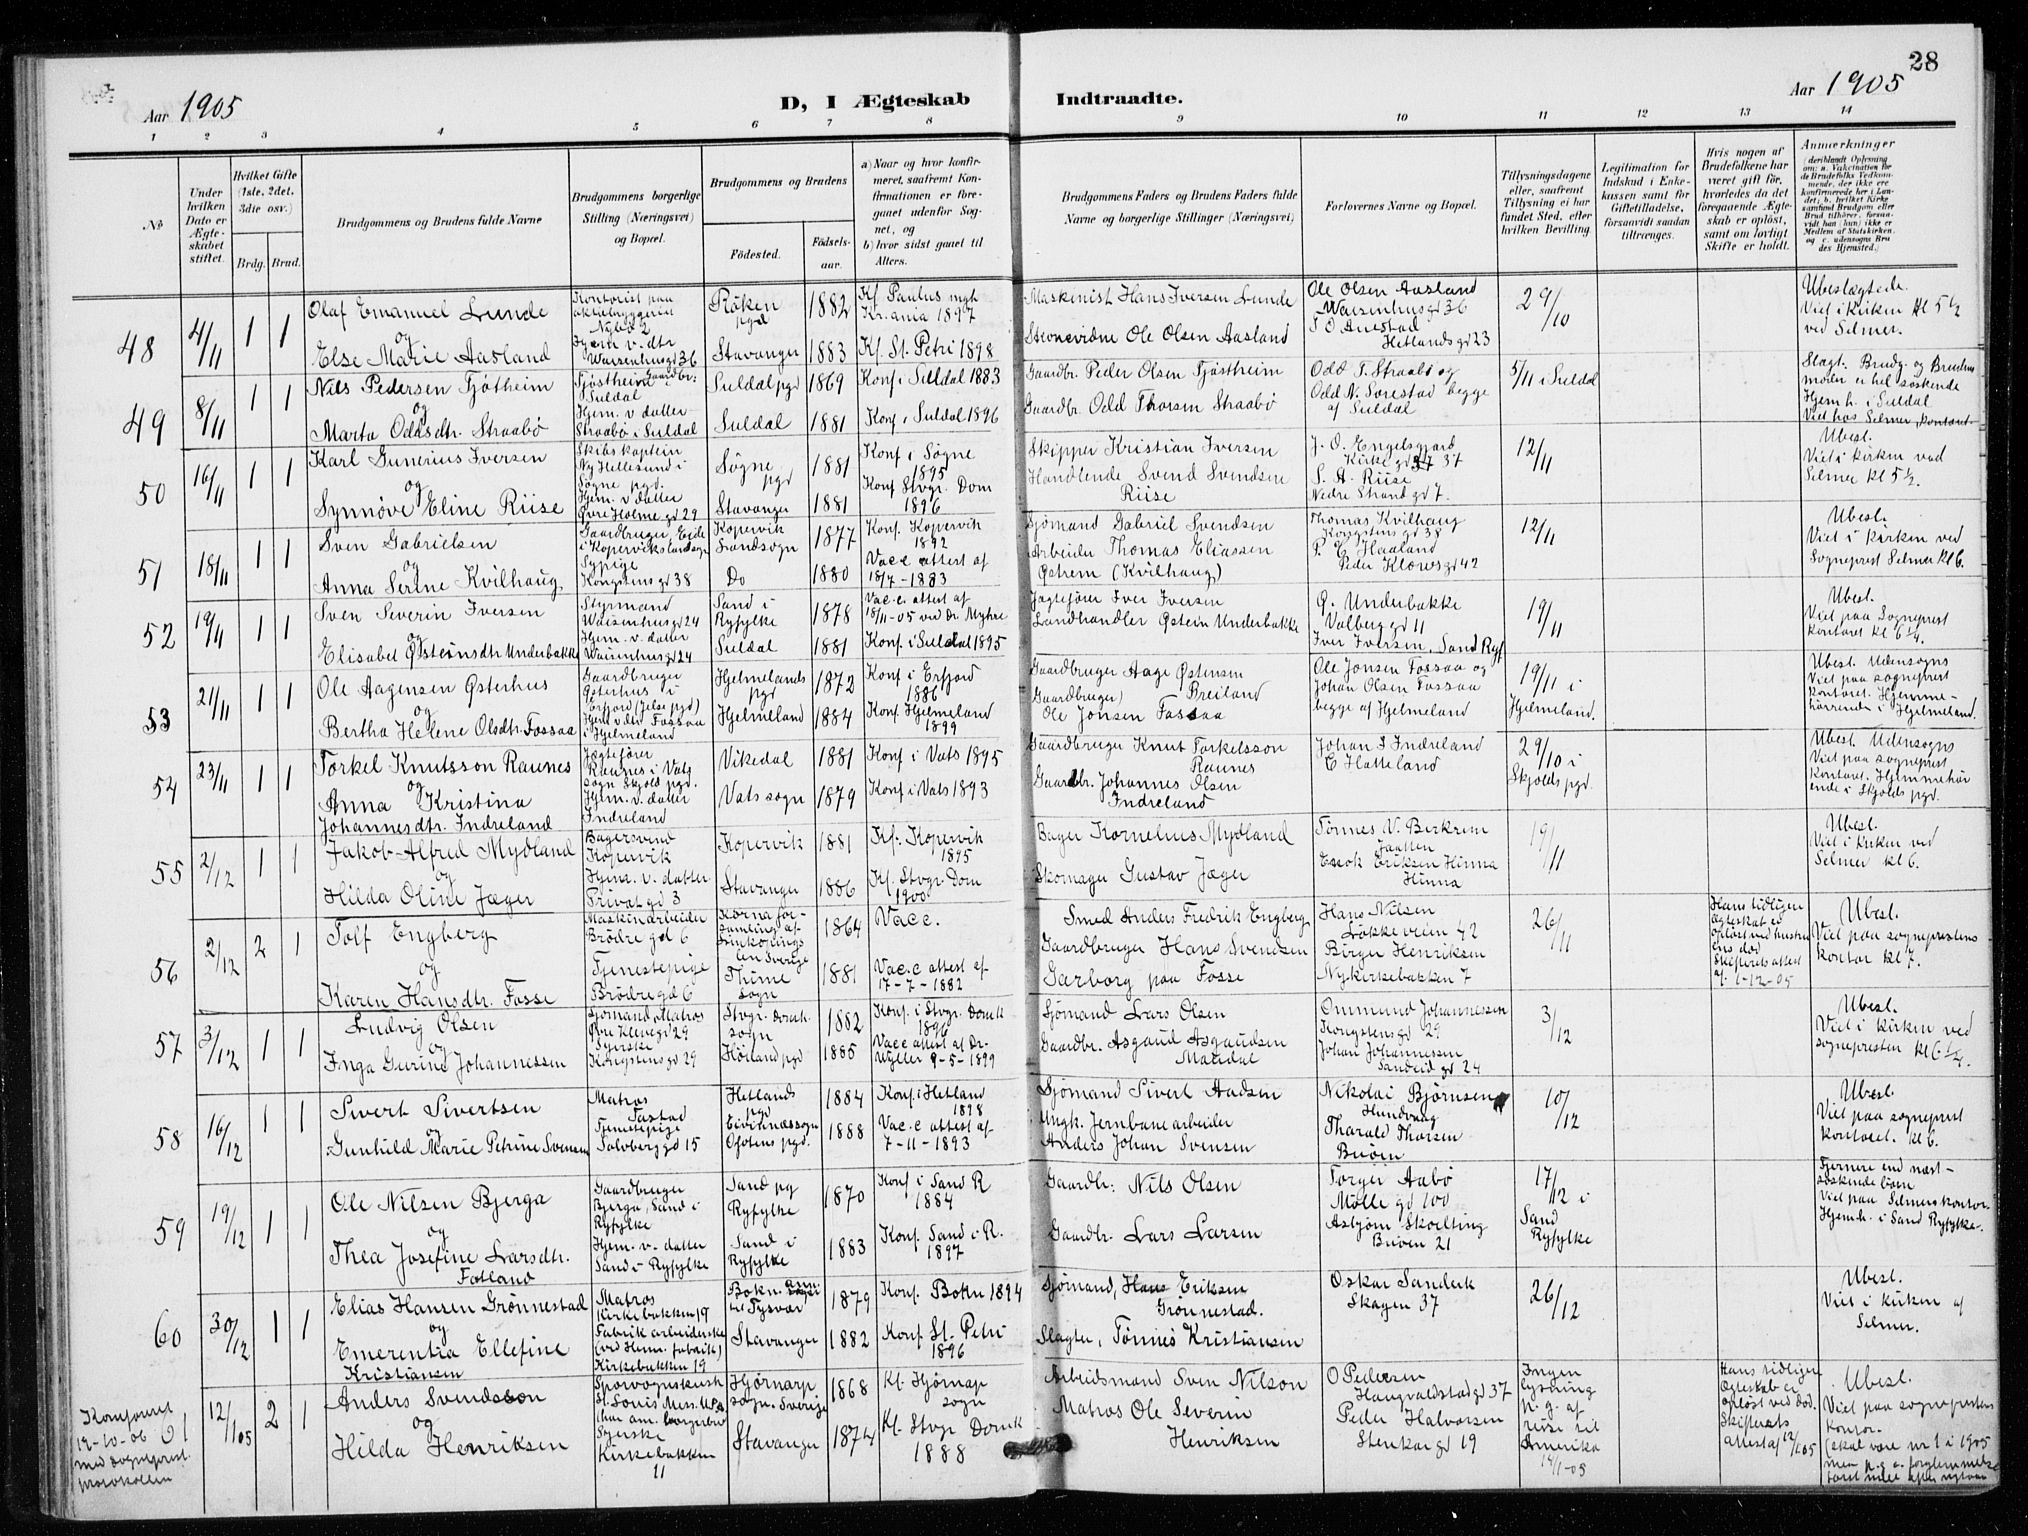 28
Aar 1905
D, I Ægteskab
Indtraadte.
Aar 1905
1 2 3 4 5 6 7 8 9 10 11 12 13 14
No
Under hvilken Dato er Ægteskabet stiftet.
Hvilket Gifte (1ste, 2det, 3die osv.)
Brdg. Brud.
Brudgommens og Brudens fulde Navne
Brudgommens borgerlige Stilling (Næringsvei) og Bopæl.
Brudgommens og Brudens
Fødested.
Fødselsaar.
a) Naar og hvor konfirmeret, saafremt Konfirmationen er foregaaet udenfor Sognet, og
b) hvor sidst gaaet til Alters.
Brudgommens Faders og Brudens Faders fulde Navne og borgerlige Stillinger (Næringsvei)
Forlovernes Navne og Bopæl.
Tillysningsdagene eller, saafremt Tillysning ei har fundet Sted, efter hvilken Bevilling.
Legitimation for Indskud i Enkekassen samt for Giftetilladelse, forsaavidt saadan tiltrænges.
Hvis nogen af Brudefolkene har været gift før, hvorledes da det foregaaende Ægteskab er opløst, samt om lovligt Skifte er holdt.
Anmærkninger
(deriblandt Oplysning om: a. Vakcination for de Brudefolks Vedkommende, der ikke ere konfirmerede her i Landet; b. hvilket Kirkesamfund Brudgom eller Brud tilhører, forsaavidt han (hun) ikke er Medlem af Statskirken, og c. udensogns Brudes Hjemsted.)
48 4/11 1 1
Olaf Emanuel Lunde
og
Else Marie Aasland
Kontorist paa
aktiebryggeriet
Nylø 2
Hjem v. dtr
Waisenhusgd 36
Røken pgd 1882
Stavanger 1883
Kf Paulus mgh
Kr.ania 1897
Kf. St. Petri 1898
Maskinist Hans Iversen Lunde
Stenevidne Ole Olsen Aasland
Ole Olsen Aasland
Waisenhusgd 36
Hetlandsgd 23
29/10
Ubeslægtede.
Viet i kirken kl 5 1/2
ved Selmer.
49 8/11 1 1
Nils Pedersen Tjøtheim
og
Marta Oddsdtr. Straabø
Tjøstheim i Gaardbr:
Suldal
Hjem. v. datter
Straabø i Suldal
Suldal pgd 1869
Suldal 1881
Konf i Suldal 1883
Konf i Suldal 1896
Gaardbr. Peder Olsen Tjøstheim
Gaardbr. Odd Thorsen Straabø
Odd T. Straabø og
Odd N. Sørestad begge
af Suldal
5/11 i Suldal
Slagt. Brudg. og Brudens
moder er hel søskende
Hjemh. i Suldal
Viet hos Selmer, kontoret.
50 16/11 1 1
Karl Gunerius Iversen
og
Synnøve Eline Riise
Skibskaptein
Ny Hellesund i
Søgne pgd.
Hjem. v. datter
Øvre Holmegd 29
Søgne pgd 1881
Stavanger 1881
Konf i Søgne
1895
Konf Stvgr. Dom
1896
Skipper Kristian Iversen
Handlende Svend Svendsen
Riise
J. O. Engelsgjærd
Kirkegd 37
S. A. Riise
Nedre Strandgd 7.
12/11
Ubest.
Viet i kirken ved
Selmer kl 5 1/2.
51 18/11 1 1
Sven Gabrielsen
og
Anna Serine Kvilhaug
Gaardbruger, Eide
i Kopervikslandsogn
Sypige
Kongstensgd 38
Kopervik
Landsogn 1877
Do 1880
Konf. Kopervik
1892
Vacc attest af
18/7 - 1883
Sjømand Gabriel Svendsen
Arbeider Thomas Eliassen
Østrem (Kvilhaug)
Thomas Kvilhaug
Kongstensgd 38
P. E. Haaland
Peder Klowsgd 42
12/11
Ubest.
Viet i kirken ved
Sogneprest Selmer kl 6.
52 19/11 1 1
Sven Severin Iversen
og
Elisabet Østeinsdtr Underbakke
Styrmand
Waisenhusgd 24
Hjem. v. datter
Waisenhusgd 24
Sand i
Ryfylke 1878
Suldal 1881
Vac.c. attest af
18/11-05 ved Dr. Myhre
Konf. i Suldal 1895
Jagtefører Iver Iversen
Landhandler Østein Underbakke
Ø. Underbakke
Valberggd 11
Iver Iversen, Sand Ryf.
19/11
Ubest.
Viet paa Sogneprest
kontoret kl 6 1/4.
53 21/11 1 1
Ole Aagensen Østerhus
og
Bertha Helene Olsdtr. Fossaa
Gaardbruger
Østerhus i
Erfjord (Jelse pgd)
Hjem v. dtr Fossaa
i Hjelmeland
Hjelmelands
pgd 1872
Hjelmeland 1884
Konf i Erfjord
1886
Konf. Hjelmeland
1899
Gaardbruger Aage Østensen
Gaardbruger) Breiland
Ole Jonsen Fossaa
Ole Jonsen Fossaa og
Johan Olsen Fossaa
begge af Hjelmeland
19/11 i
Hjelmeland.
Ubest. Udensogns
Viet paa sogneprest
kontoret. Hjemme-
hørende i Hjelmeland.
54 23/11 1 1
Torkel Knutsson Raunes
og
Anna Kristina
Johannesdtr. Indreland
Jægtefører
Raunes i Vats
sogn Skjold pgd.
Hjem. v. datter
Indreland
Vikedal 1881
Vats sogn 1879
Konf i Vats 1895
Konf i Vats 1893
Gaardbruger Knut Torkelsson
Raunes
Gaardbr. Johannes Olsen
Indreland
Johan I Indreland
C Hatteland
29/10 i
Skjolds pgd.
Ubest. Udensogns
Viet paa sogneprest
kontoret. Hjemmehør
ende i Skjolds pgd.
55 2/12 1 1
Jakob Alfred Mydland
og
Hilda Oline Jæger
Bagersvend
Kopervik
Hjem. v. datter
Privatgd 3
Kopervik 1881
Stavanger 1886
Kf. Kopervik
1895
Kf. Stvgr. Dom
1900
Bager Kornelius Mydland
Skomager Gustav Jæger
Tønnes V. Berkrem
Jaatten
Enok Eriksen Hinna
Hinna
19/11
Ubest.
Viet i kirken ved
Selmer kl 6.
56 2/12 2 1
Tolf Engberg
og
Karen Hansdtr. Fosse
Maskinarbeider
Brødregd 6
Tjenestepige
Brødregd 6
Korna for-
samling af
Linkøpings
len Sverige 1864
Thime
sogn 1881
Vacc.
Vac.c attest af
17-7-1882
Smed Anders Fredrik Engberg
Gaardbruger Hans Svendsen
Garborg paa Fosse
Hans Nilsen
Løkkeveien 42
Børge Henriksen
Nykirkebakken 7
26/11
Hans tidligere
ægteskab er
opløst ved hustru
ens død
Skifterets attest
af 1-12-05
Ubest.
Viet paa sogneprestens
kontor kl 7.
57 3/12 1 1
Ludvig Olsen
og
Inga Gurine Johannessen
Sjømand Matros
Øvre Klevegd 29
Syerske
Kongstensgd 29
Stvgr. Domk.
sogn 1882
Høiland pgd 1885
Konf. i Stvgr. Domk
1896
Vacc attest af Dr.
Wyller 9-5-1899
Sjømand Lars Olsen
Gaardbr. Asgaud Asgaudsen
Maudal
Ommund Johannessen
Kongstensgd 29
Johan Johannessen
Sandeidgd 24
3/12
Ubest.
Viet i kirken ved
sognepresten kl 6 1/4.
58 16/12 1 1
Sivert Sivertsen
og
Gunhild Marie Petrine Svensen
Matros
Tastad
Tjenestepige
Solvberggd 15
Hetlands
pgd 1884
Evindnæssogn
Ofotens pgd. 1888
Konf. i Hetland
1898
Vac.c attest af
7-11-1893
Sjømand Sivert Aadsen
Ungk. Jernbanearbeider
Anders Johan Svensen
Nikolai Bjørnsen
Hundvaag
Tharald Thorsen
Buøen
10/12
Ubest.
Viet paa sogneprest
kontoret. kl 6.
59 19/12 1 1
Ole Nilsen Bjerga
og
Thea Josefine Larsdtr.
Fatland
Gaardbruger
Bjerga, Sand i
Ryfylke
Hjem. v. datter
Sand i Ryfylke
Sand pg
Ryfylke 1870
Sand i
Ryfylke 1883
Konf i Sand R
1884
Konf. Sand i R.
1897
Gaardbr: Nils Olsen
Gaardbr. Lars Larsen
Torger Aabø
Møllegd 100
Asbjørn Skoelting
Buøen 21
17/12 i
Sand
Ryfylke
Fjernere end næst-
søskendebørn
Viet paa Selmers kontor.
Hjemh. i Sand Ryfylke.
60 30/12 1 1
Elias Hansen Grønnestad
og
Emerentia Ellefine
Kristiansen
Matros
Kirkebakken 19
Fabrikarbeiderske
(ved Herm. fabrik)
Kirkebakken 19
Bokn annex
til Tysvær 1879
Stavanger 1882
Konf. Bokn 1894
Konf St. Petri
1896
Sjømand, Hans Eriksen
Grønnestad.
Slagter, Tønnes Kristiansen
Oskar Sanderk
Skagen 37
26/12
Ubest.
Viet i kirken af
Selmer.
Konfereret
12-10-06
med sogneprest.
protokollen
61 12/1 05 2 1
Anders Svendsson
og
Hilda Henriksen
Sporvognskusk
St. Louis Miss. U.S.A.
(har am. borgerbrev
Syerske
Kirkebakken
11
Hjørnarp
sogn. Sverige 1868
Stavanger 1874
Kf. Hjørnap
sogn
Kf. Stvgr Domk
1888
Arbeidsmand Sven Nilson
Matros Ole Severin
Henriksen
O Pedersen
Haugvaldstadgd 37
Peder Halvorsen
Stenkargd 19
Ingen
lysning
p. g. af
reise til
Amerika
14/1-05
Hans tidligere
Ægteskab er
opløst ved død.
Skifterets
attest af 12/1 05
Ubest.
Viet paa sogneprestens
kontor.
(skal være nr 1 i 1905
men p. g. a. forglemmelse